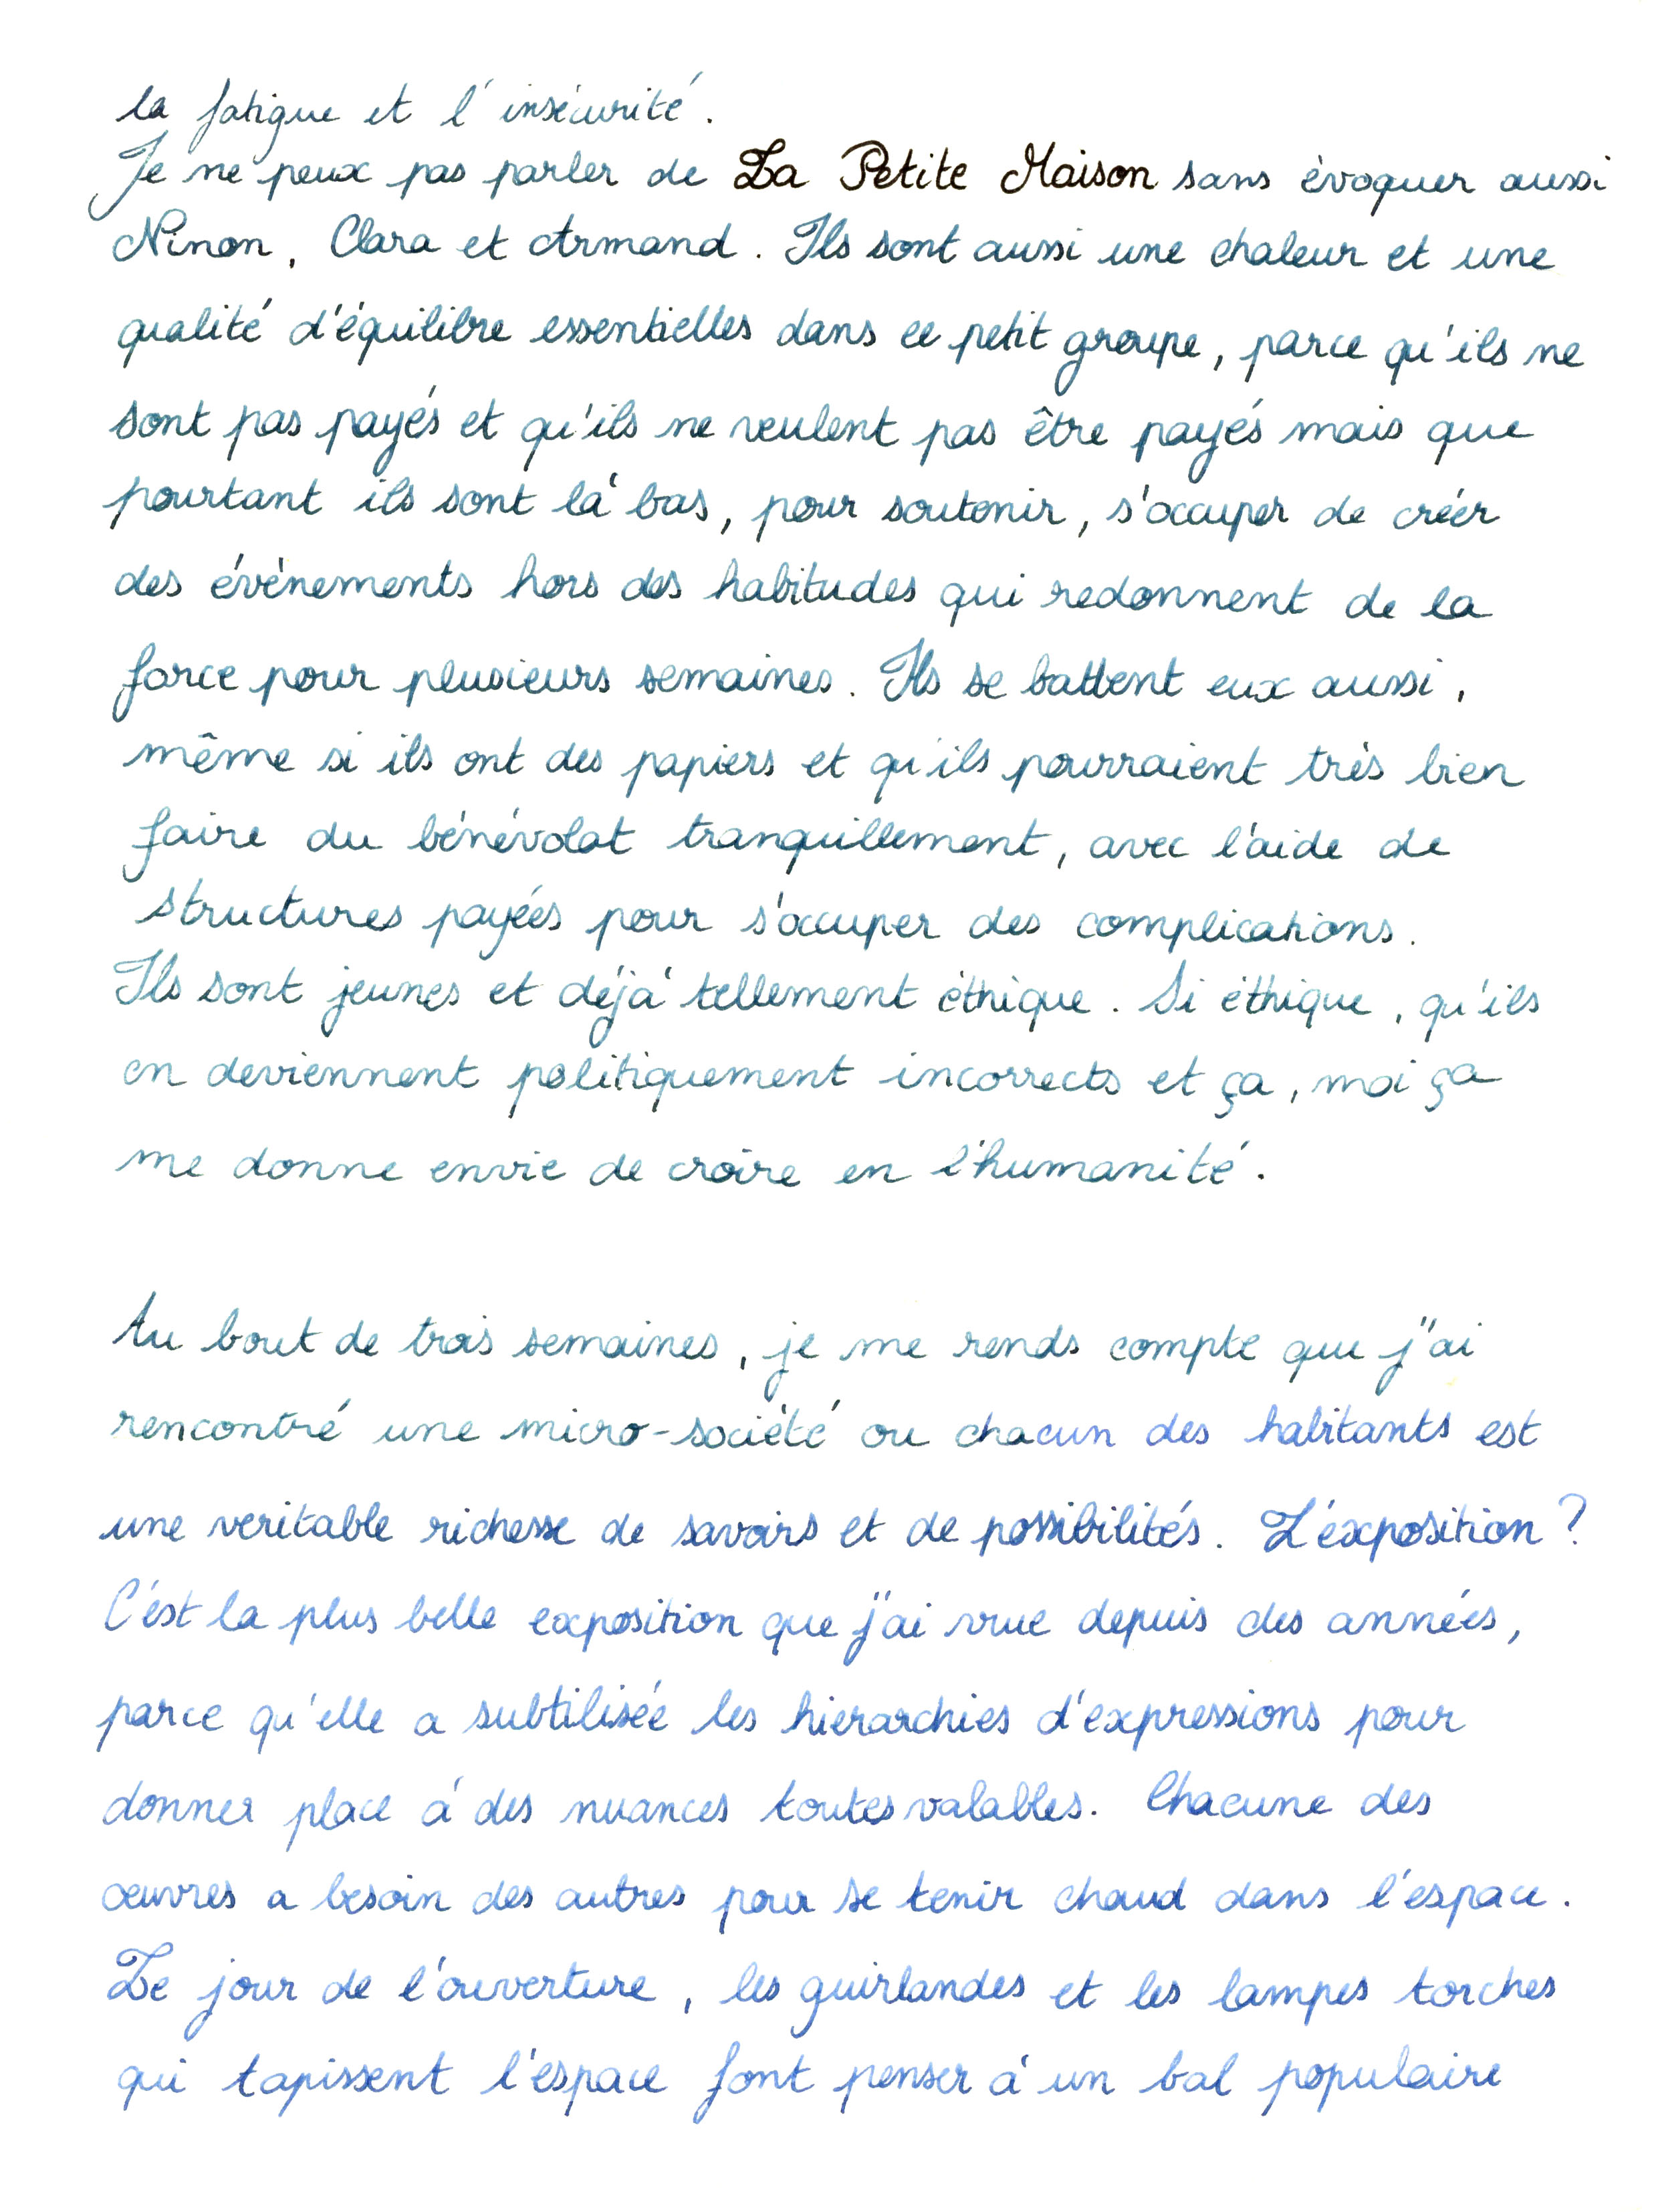 la fatigue et l'insécurité.
Je ne peux pas parler de La Petite Maison sans évoquer aussi
Ninon, Clara et Armand. Ils sont aussi une chaleur et une
qualité d'équilibre essentielles dans ce petit groupe, parce qu'ils ne
sont pas payés et qu'ils ne veulent pas être payés mais que
pourtant ils sont là bas, pour soutenir, s'occuper de créer
des évènements hors des habitudes qui redonnent de la
force pour plusieurs semaines. Ils se battent eux aussi,
même si ils ont des papiers et qu'ils pourraient très bien
faire du bénévolat tranquillement, avec l'aide de
structures payées pour s'occuper des complications.
Ils sont jeunes et déjà tellement éthique. Si éthique, qu'ils
en deviennent politiquement incorrects et ça, moi ça
me donne envie de croire en l'humanité.
Au bout de trois semaines, je me rends compte que j'ai
rencontré une micro-société ou chacun des habitants est
une veritable richesse de savoirs et de possibilités. L'éxposition ?
C'ést la plus belle exposition que j'ai vue depuis des années,
parce qu'elle a subtilisée les hierarchies d'expressions pour
donner place à des nuances toutes valables. Chacune des
œuvres a besoin des autres pour se tenir chaud dans l'espace.
Le jour de l'ouverture, les guirlandes et les lampes torches
qui tapissent l'espace font penser à un bal populaire